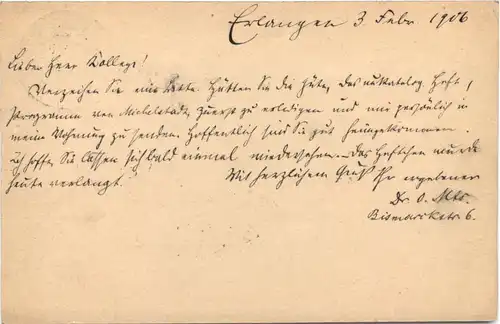 Erlangen 3 Febr 1906
Lieber Herr Kollege!
Verzeihen Sie mir bitte. Hätten Sie die Güte, das Heft,
Programm von Michelstadt, zuerst zu erledigen und mir persönlich in
meine Wohnung zu senden. Hoffentlich sind Sie gut heimgekommen.
ich hoffe, Sie lassen sich bald einmal wiedersehen. Das Heftchen wurde
heute verlangt.
Mit herzlichem Gruß Ihr ergebener
Dr. O.
Bismarckstr 6.